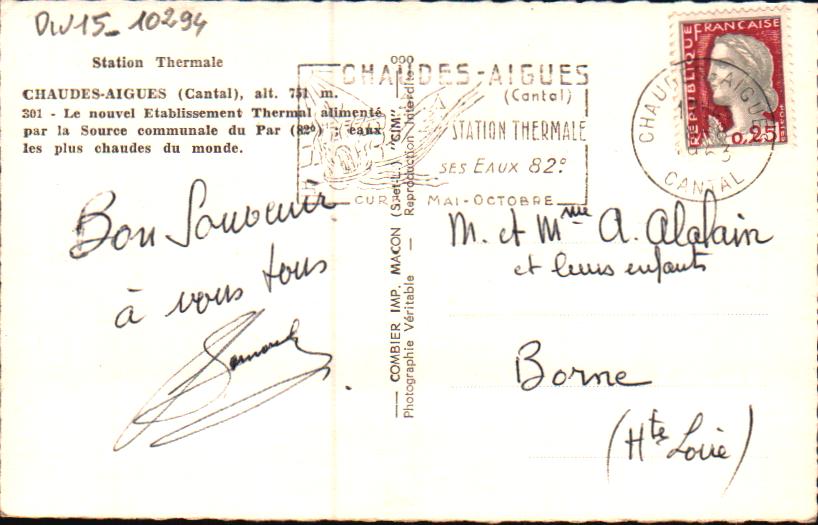 DW15_10294
Station Thermale
CHAUDES-AIGUES (Cantal), alt. 751 m.
301 - Le nouvel Etablissement Thermal alimenté
par la Source communale du Par (82°) eaux
les plus chaudes du monde.
Bon Souvenir
à vous tous
COMBIER IMP. MACON (S.-et-L.) "CIM"
Photographie Véritable — Reproduction Interdite
CHAUDES-AIGUES
(Cantal)
STATION THERMALE
SES EAUX 82°
CURE MAI-OCTOBRE
CHAUDES-AIGUES
CANTAL
REPUBLIQUE FRANÇAISE
0,25
POSTES
M. et Mme A. Alalain
et leurs enfants
Borne
(Hte Loire)